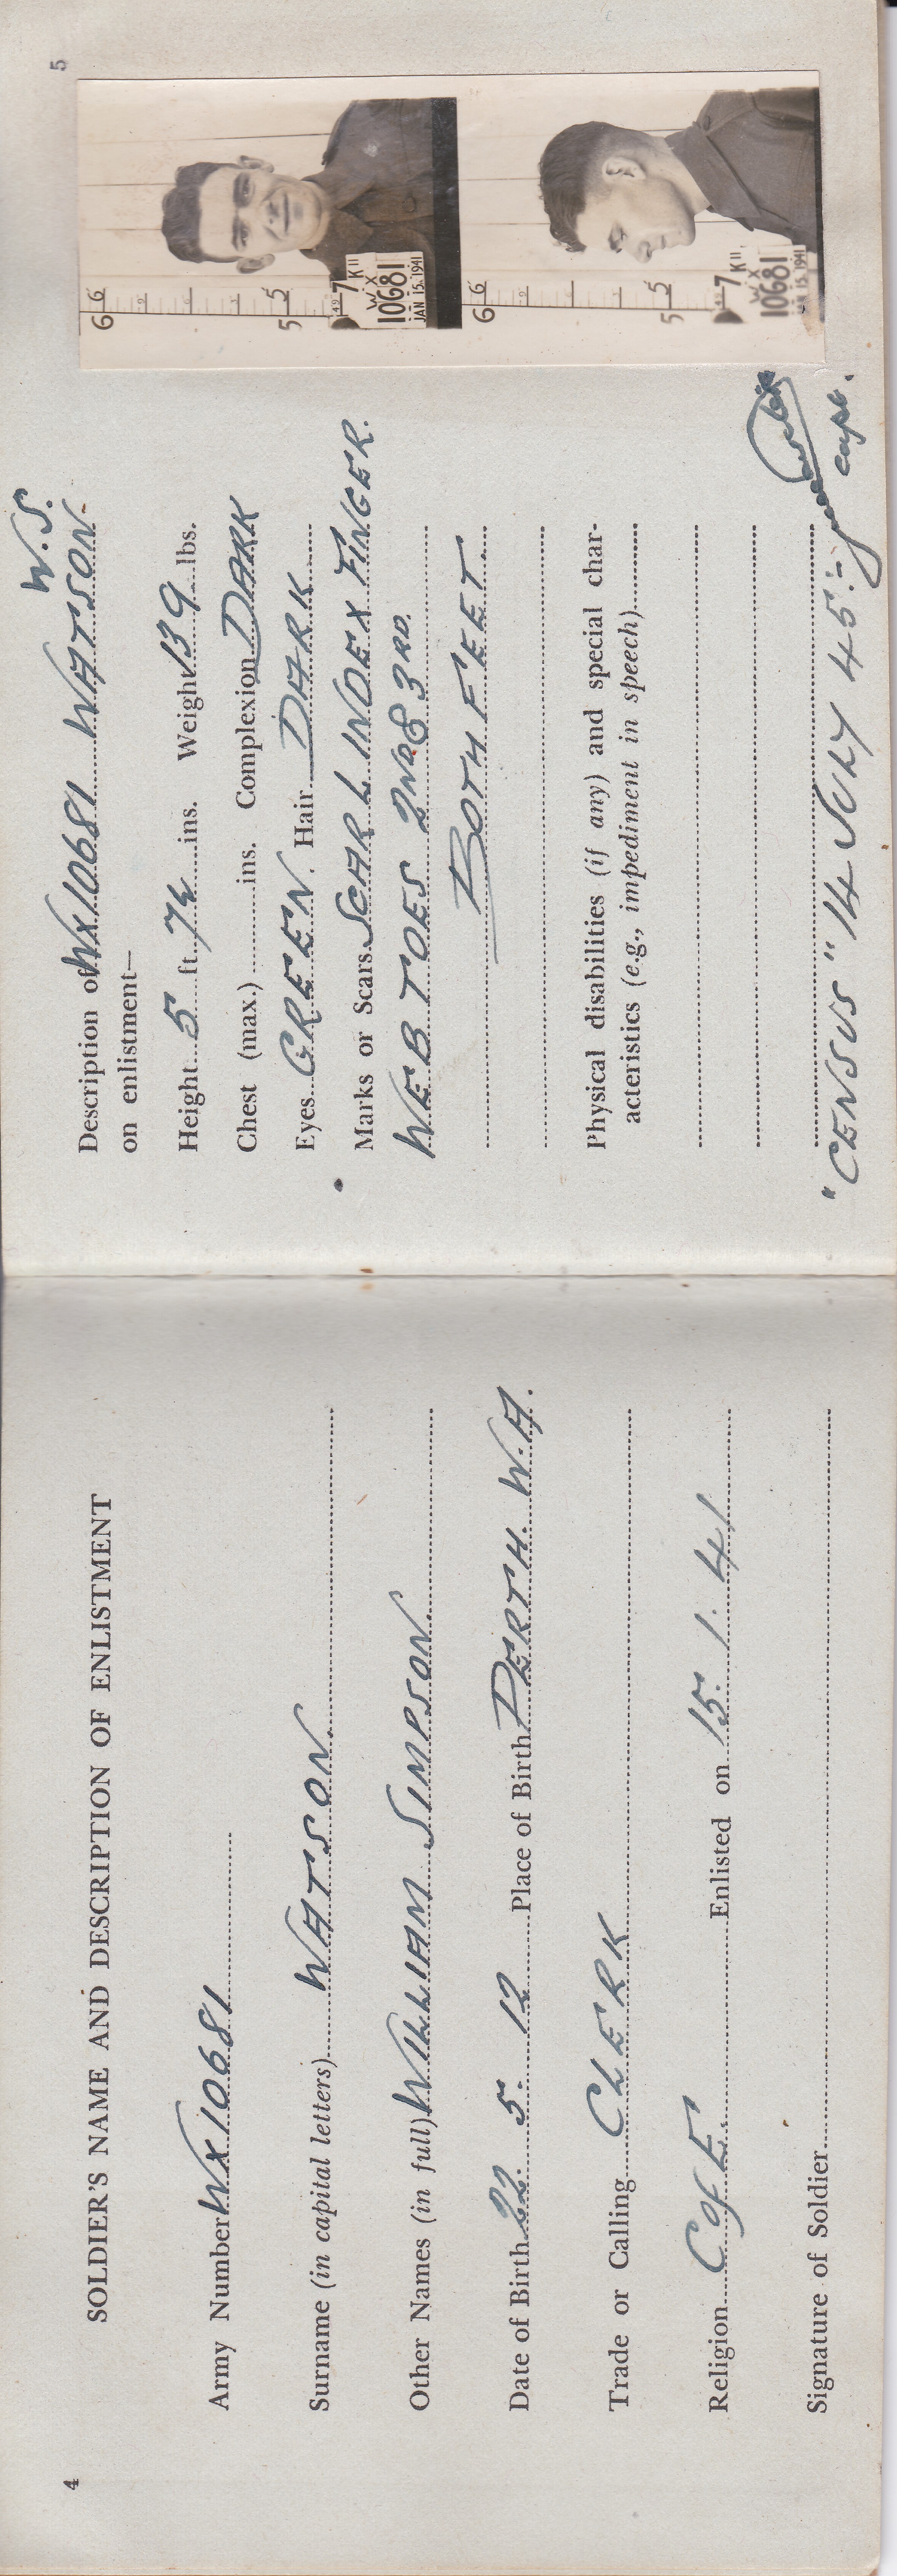 4
SOLDIER'S NAME AND DESCRIPTION OF ENLISTMENT
Army Number WX10681
Surname (in capital letters) WATSON.
Other Names (in full) WILLIAM SIMPSON.
Date of Birth 22. 5. 12 Place of Birth PERTH. W.A.
Trade or Calling CLERK
Religion C of E. Enlisted on 15. 1. 41
Signature of Soldier
5
W.S.
Description of WX10681 WATSON.
on enlistment—
Height 5 ft. 7¼ ins. Weight 139 lbs.
Chest (max.) ins. Complexion DARK
Eyes GREEN. Hair DARK
Marks or Scars SCAR L INDEX FINGER.
WEB TOES 2ND & 3RD.
BOTH FEET
Physical disabilities (if any) and special char-
acteristics (e.g., impediment in speech)
"CENSUS" 14 JULY 45:-
capt.
6 6
5 5
7 K11
WX
10681
JAN 15. 1941
6 6
5 5
7 K11
WX
10681
JAN 15. 1941